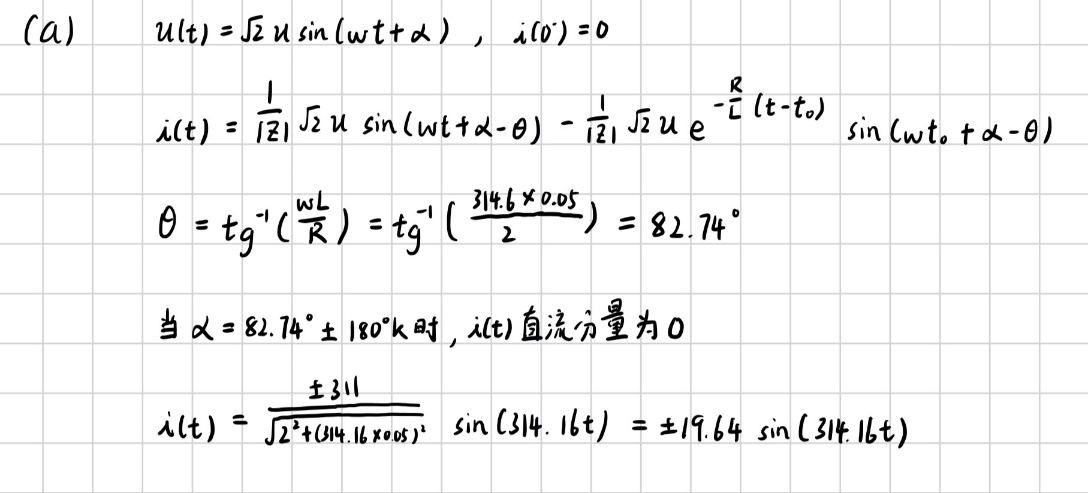 (a) u(t) = √2 u sin(wt+α) , i(0⁻)=0
i(t) = 1/|Z| √2 u sin(wt+α-θ) - 1/|Z| √2 u e^(-R/L (t-t₀)) sin(wt₀+α-θ)
θ = tg⁻¹(wL/R) = tg⁻¹(314.6×0.05/2) = 82.74°
当 α = 82.74° ± 180°k 时, i(t) 直流分量为 0
i(t) = ±311/√(2²+(314.16×0.05)²) sin(314.16t) = ±19.64 sin(314.16t)